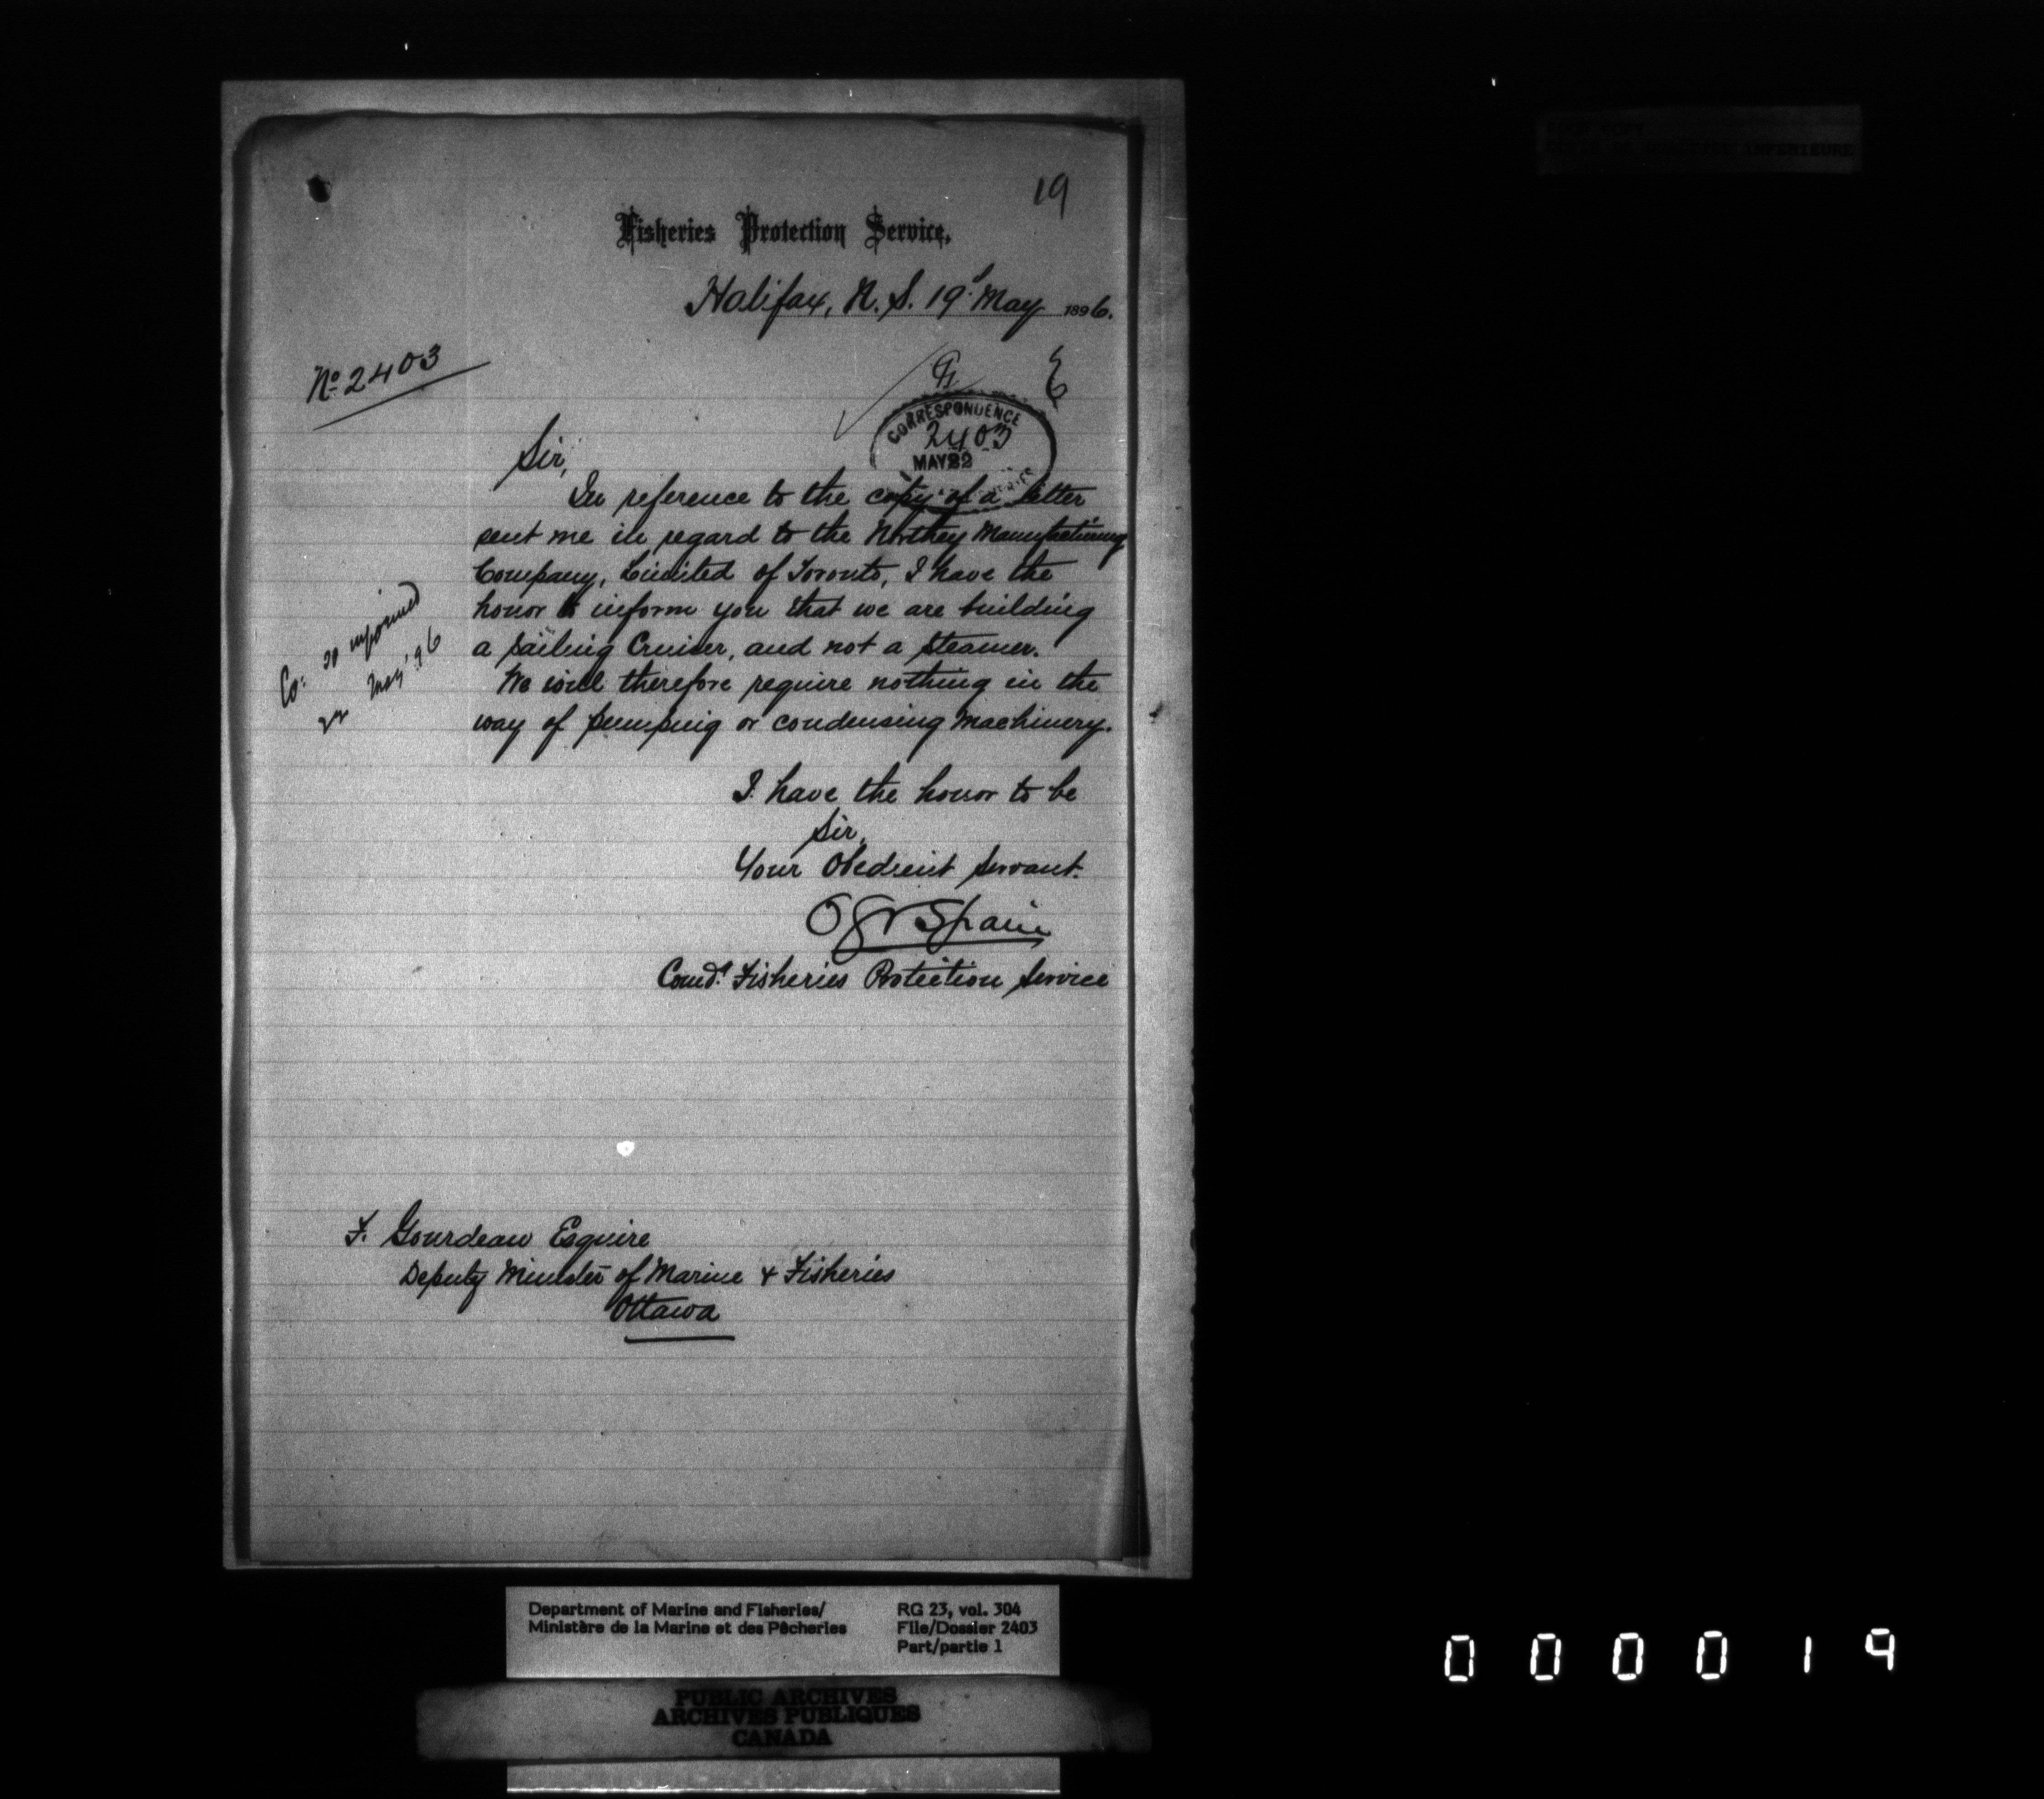 19
Fisheries Protection Service.
Halifax, N. S. 19th May 1896.
No 2403
CORRESPONDENCE
2403
MAY 22
Sir,
In reference to the copy of a letter
sent me in regard to the Northey Manufacturing
Company, Limited of Toronto, I have the
honor to inform you that we are building
a sailing Cruiser, and not a steamer.
We will therefore require nothing in the
way of pumping or condensing machinery.
Co: so informed
22 May '96
I have the honor to be
Sir,
Your Obedient Servant.
OGV Spain
Comdr Fisheries Protection Service
F. Gourdeau Esquire
Deputy Minister of Marine & Fisheries
Ottawa
Department of Marine and Fisheries/
Ministère de la Marine et des Pêcheries
RG 23, vol. 304
File/Dossier 2403
Part/partie 1
PUBLIC ARCHIVES
ARCHIVES PUBLIQUES
CANADA
000019